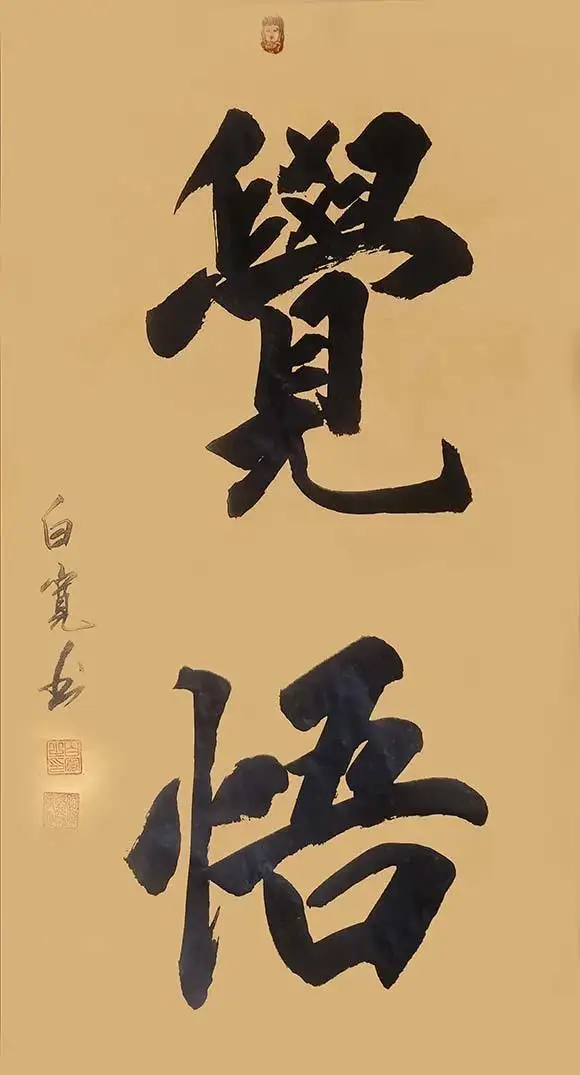 覺悟
白寬书